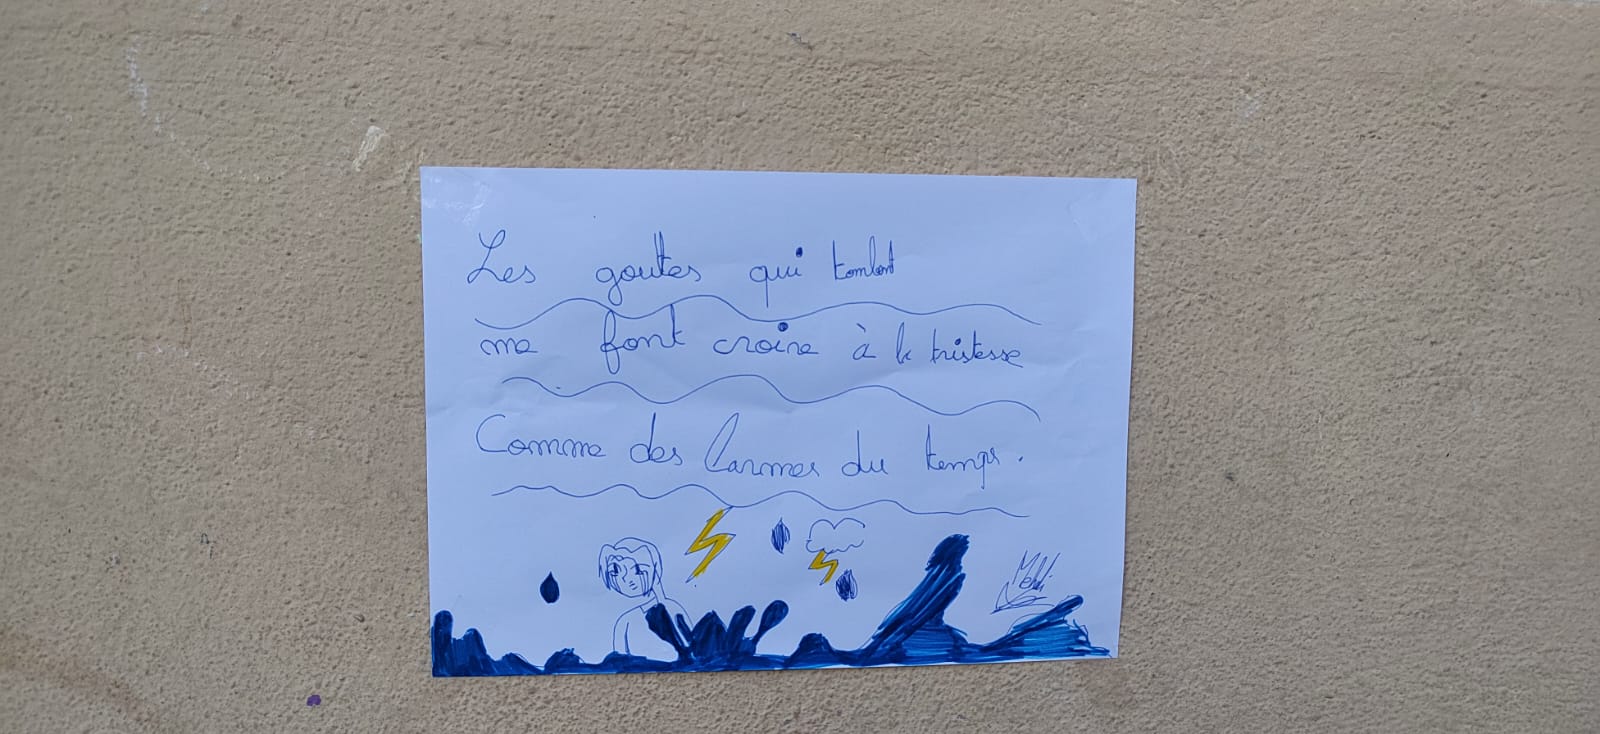 Les gouttes qui tombent
me font croire à la tristesse
Comme des larmes du temps.
Mehdi